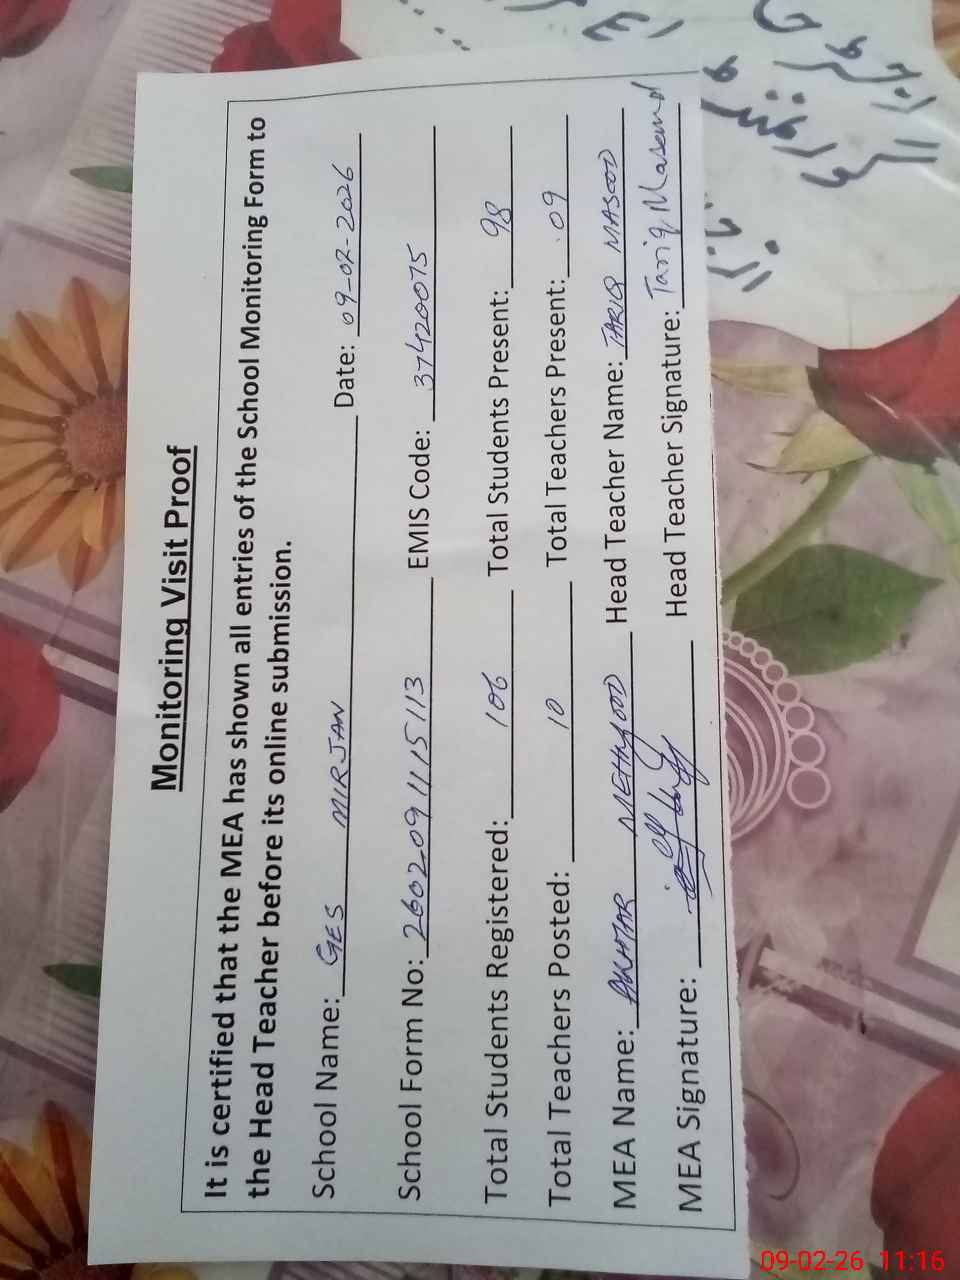 Monitoring Visit Proof
It is certified that the MEA has shown all entries of the School Monitoring Form to
the Head Teacher before its online submission.
School Name: GES MIRJAN Date: 09-02-2026
School Form No: 2602091115113 EMIS Code: 37420075
Total Students Registered: 106 Total Students Present: 98
Total Teachers Posted: 10 Total Teachers Present: 09
MEA Name: AKHTAR MEHMOOD Head Teacher Name: TARIQ MASOOD
MEA Signature: Head Teacher Signature: Tariq Masood
09-02-26 11:16